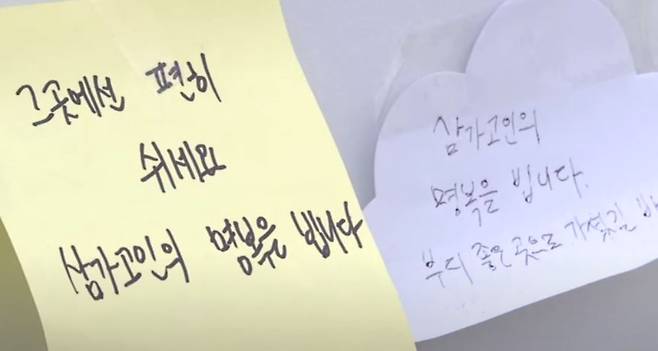 그곳에선 편히
쉬세요
삼가고인의 명복을 빕니다
삼가고인의
명복을 빕니다.
부디 좋은 곳으로 가셨길 바